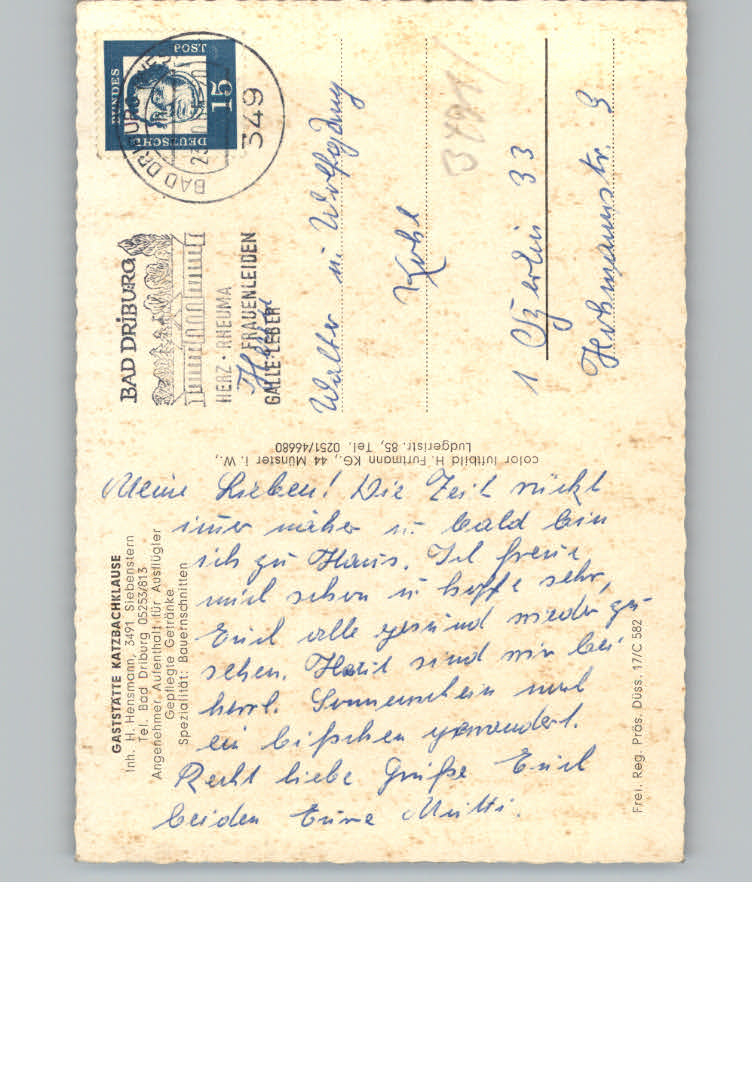 GASTSTÄTTE KATZBACHKLAUSE
Inh. H. Hensmann, 3491 Siebenstern
Tel. Bad Driburg 05253/813
Angenehmer Aufenthalt für Ausflügler
Gepflegte Getränke
Spezialität: Bauernschnitten
Meine Lieben! Die Zeit rückt
immer näher u bald bin
ich zu Haus. Ich freue
mich schon u hoffe sehr,
Euch alle gesund wieder zu
sehen. Heut sind wir bei
herrl. Sonnenschein noch
ein bißchen gewandert.
Recht liebe Grüße Euch
beiden Eure Mutti.
Frei. Reg. Präs. Düss. 17/C 582
color luftbild H. Furtmann KG., 44 Münster i. W.,
Ludgeristr. 85, Tel. 0251/46680
BAD DRIBURG
HERZ · RHEUMA
FRAUENLEIDEN
GALLE · LEBER
BAD DRIBURG
349
DEUTSCHE BUNDES
15
J.S.B.
Walter u Wolfgang
Kohl
1 Berlin 33